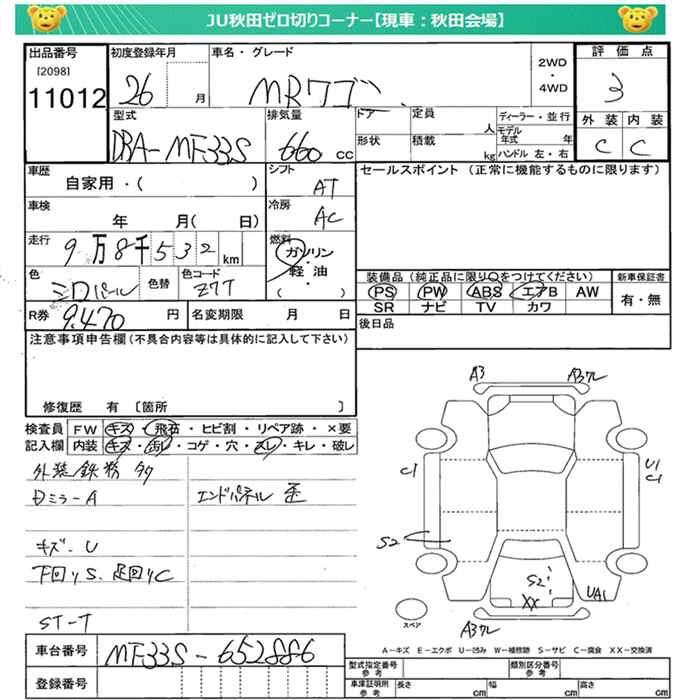 JU秋田ゼロ切りコーナー【現車:秋田会場】
出品番号 初度登録年月 車名・グレード 2WD ・ 4WD 評価点
[2098]
11012 26 月 MRワゴン 3
型式 排気量 ドア 定員 人 ディーラー・並行 外装 内装
DBA-MF33S 660 cc 形状 積載 kg モデル年式 年 ハンドル 左・右 C C
車歴 シフト セールスポイント(正常に機能するものに限ります)
自家用・( ) AT
車検 冷房
年 月( 日) AC
走行 9万8千532km 燃料 ガソリン・軽油・( )
色 色替 色コード 装備品(純正品に限り○をつけてください) 新車保証書
シロパール Z7T PS PW ABS エアB AW 有・無
SR ナビ TV カワ
R券 9,470 円 名変期限 月 日 後日品
注意事項申告欄(不具合内容等は具体的に記入して下さい)
修復歴 有 [箇所 ]
検査員 FW キズ・飛石・ヒビ割・リペア跡・×要
記入欄 内装 キズ・汚レ・コゲ・穴・スレ・キレ・破レ
外装/鉄粉 多
Dミラ-A エンドパネル 歪
キズ、U
下回りS、足回りC
ST-T
A3 A3ワレ
C1 U1
C1
S2
S2
XX UA1
スペア A3ワレ
A-キズ E-エクボ U-凹み W-補修跡 S-サビ C-腐食 XX-交換済
車台番号 MF33S-652886 型式指定番号 参考 類別区分番号 参考
登録番号 車庫証明用 参考 長さ cm 幅 cm 高さ cm